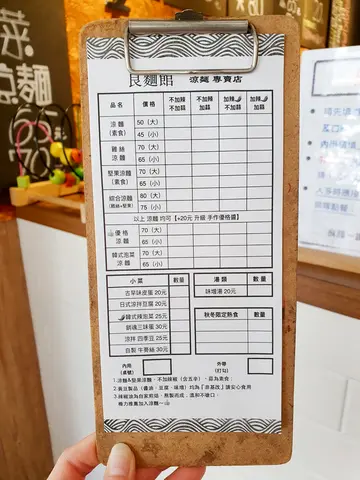 菜
涼麵
良麵館 涼麵 專賣店
品名 價格 不加辣 不加蒜 不加辣 加蒜 加辣 不加蒜 加辣 加蒜
涼麵 (素食) 50 (大)
45 (小)
雞絲涼麵 70 (大)
65 (小)
堅果涼麵 (素食) 70 (大)
65 (小)
綜合涼麵 (雞絲+堅果) 80 (大)
75 (小)
以上 涼麵 均可【+20元 升級 手作優格醬】
優格涼麵 70 (大)
65 (小)
韓式泡菜涼麵 70 (大)
65 (小)
小菜 數量 湯類 數量
古早味皮蛋 20元 味增湯 20元
日式涼拌豆腐 20元
韓式辣泡菜 25元 秋冬限定熱食 數量
銷魂三味蛋 30元
涼拌 四季豆 25元
自製 牛蒡絲 30元
內用 (桌號) 外帶 (打勾)
1.涼麵&堅果涼麵，不加辣椒（含五辛），品為素食。
2.黃豆製品（醬油、豆腐、味增）均為【非基改】請安心食用
3.辣椒油為自家煎焙，無製雨成，溫和不嗆口，
極力推薦加入涼麵一